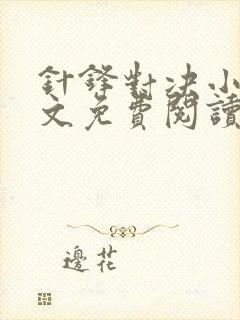 針鋒對决小
文免費閱讀
邊花